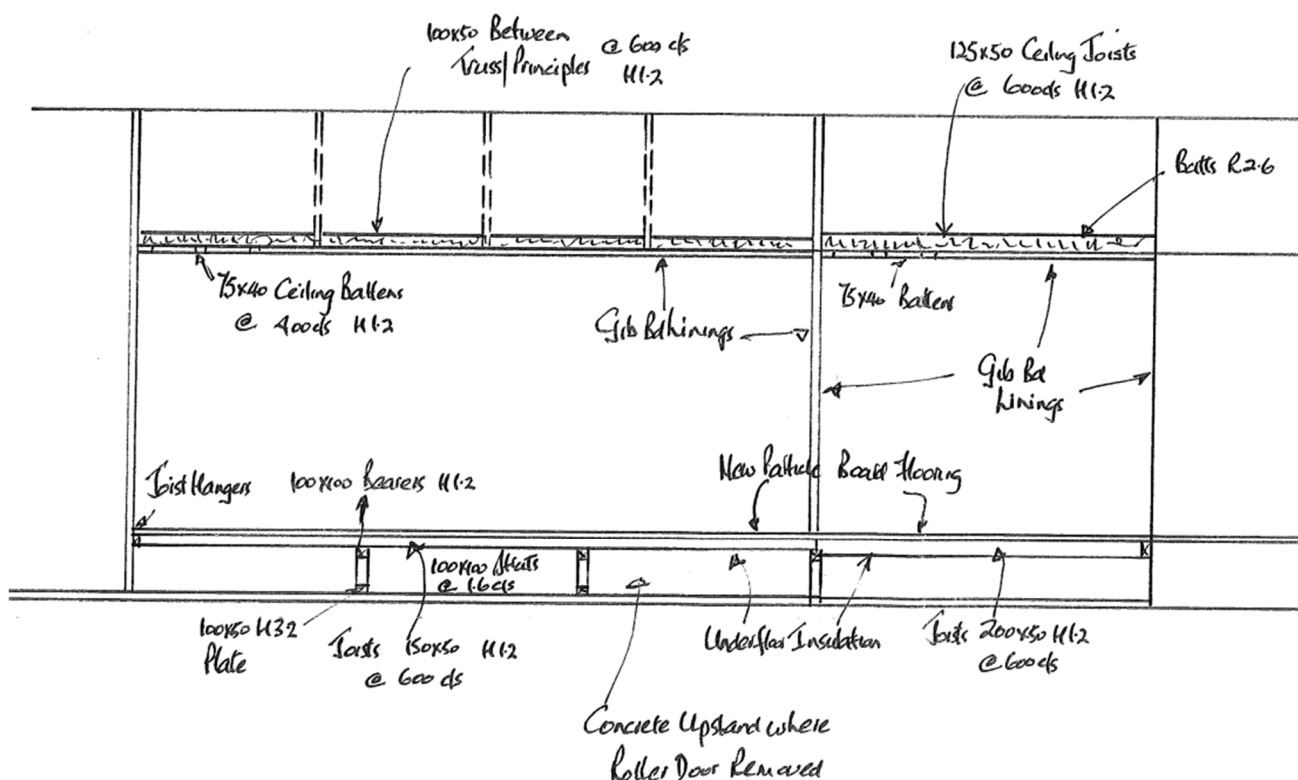 100x50 Between
Truss/Principles @ 600 c/s
H1.2
125x50 Ceiling Joists
@ 600c/s H1.2
Batts R2.6
75x40 Ceiling Battens
@ 400c/s H1.2
Gib Bd Linings
75x40 Battens
Gib Bd
Linings
Joist Hangers
100x100 Bearers H1.2
New Particle Board Flooring
100x100 Struts
@ 1.6 c/s
100x50 H3.2
Plate
Joists 150x50 H1.2
@ 600 c/s
Underfloor Insulation
Joists 200x50 H1.2
@ 600 c/s
Concrete Upstand where
Roller Door Removed